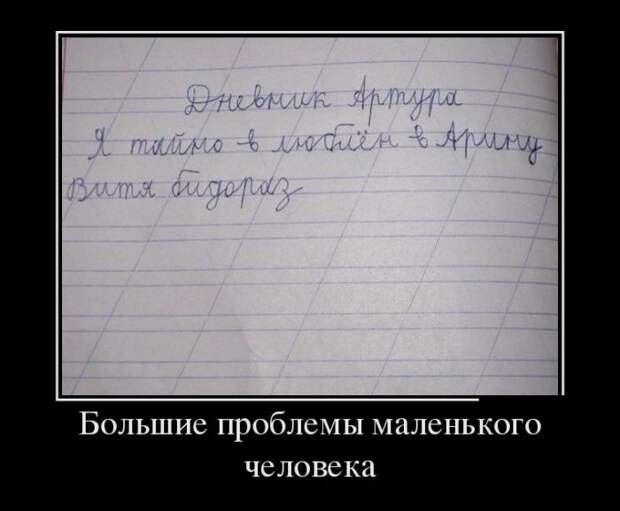 Дневник Артура
Я тайно в люблён в Арину
Витя бидораз
Большие проблемы маленького
человека